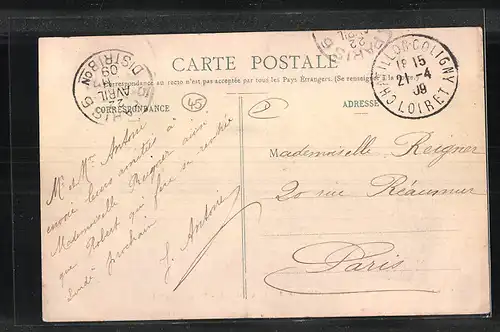 CARTE POSTALE
La Correspondance au recto n'est pas acceptée par tous les Pays Étrangers. (Se renseigner à la poste)
CORRESPONDANCE
ADRESSE
45
PARIS DISTRIBON
22 AVRIL 09
CHATILLON-COLIGNY
18 15
21-4
09
LOIRET
Mr et Mme Antoine
envoie leurs amitiés à
Mademoiselle Reigner ainsi
que Robert qui
lundi prochain
J. Antoine
Mademoiselle Reigner
20 rue Réaumur
Paris